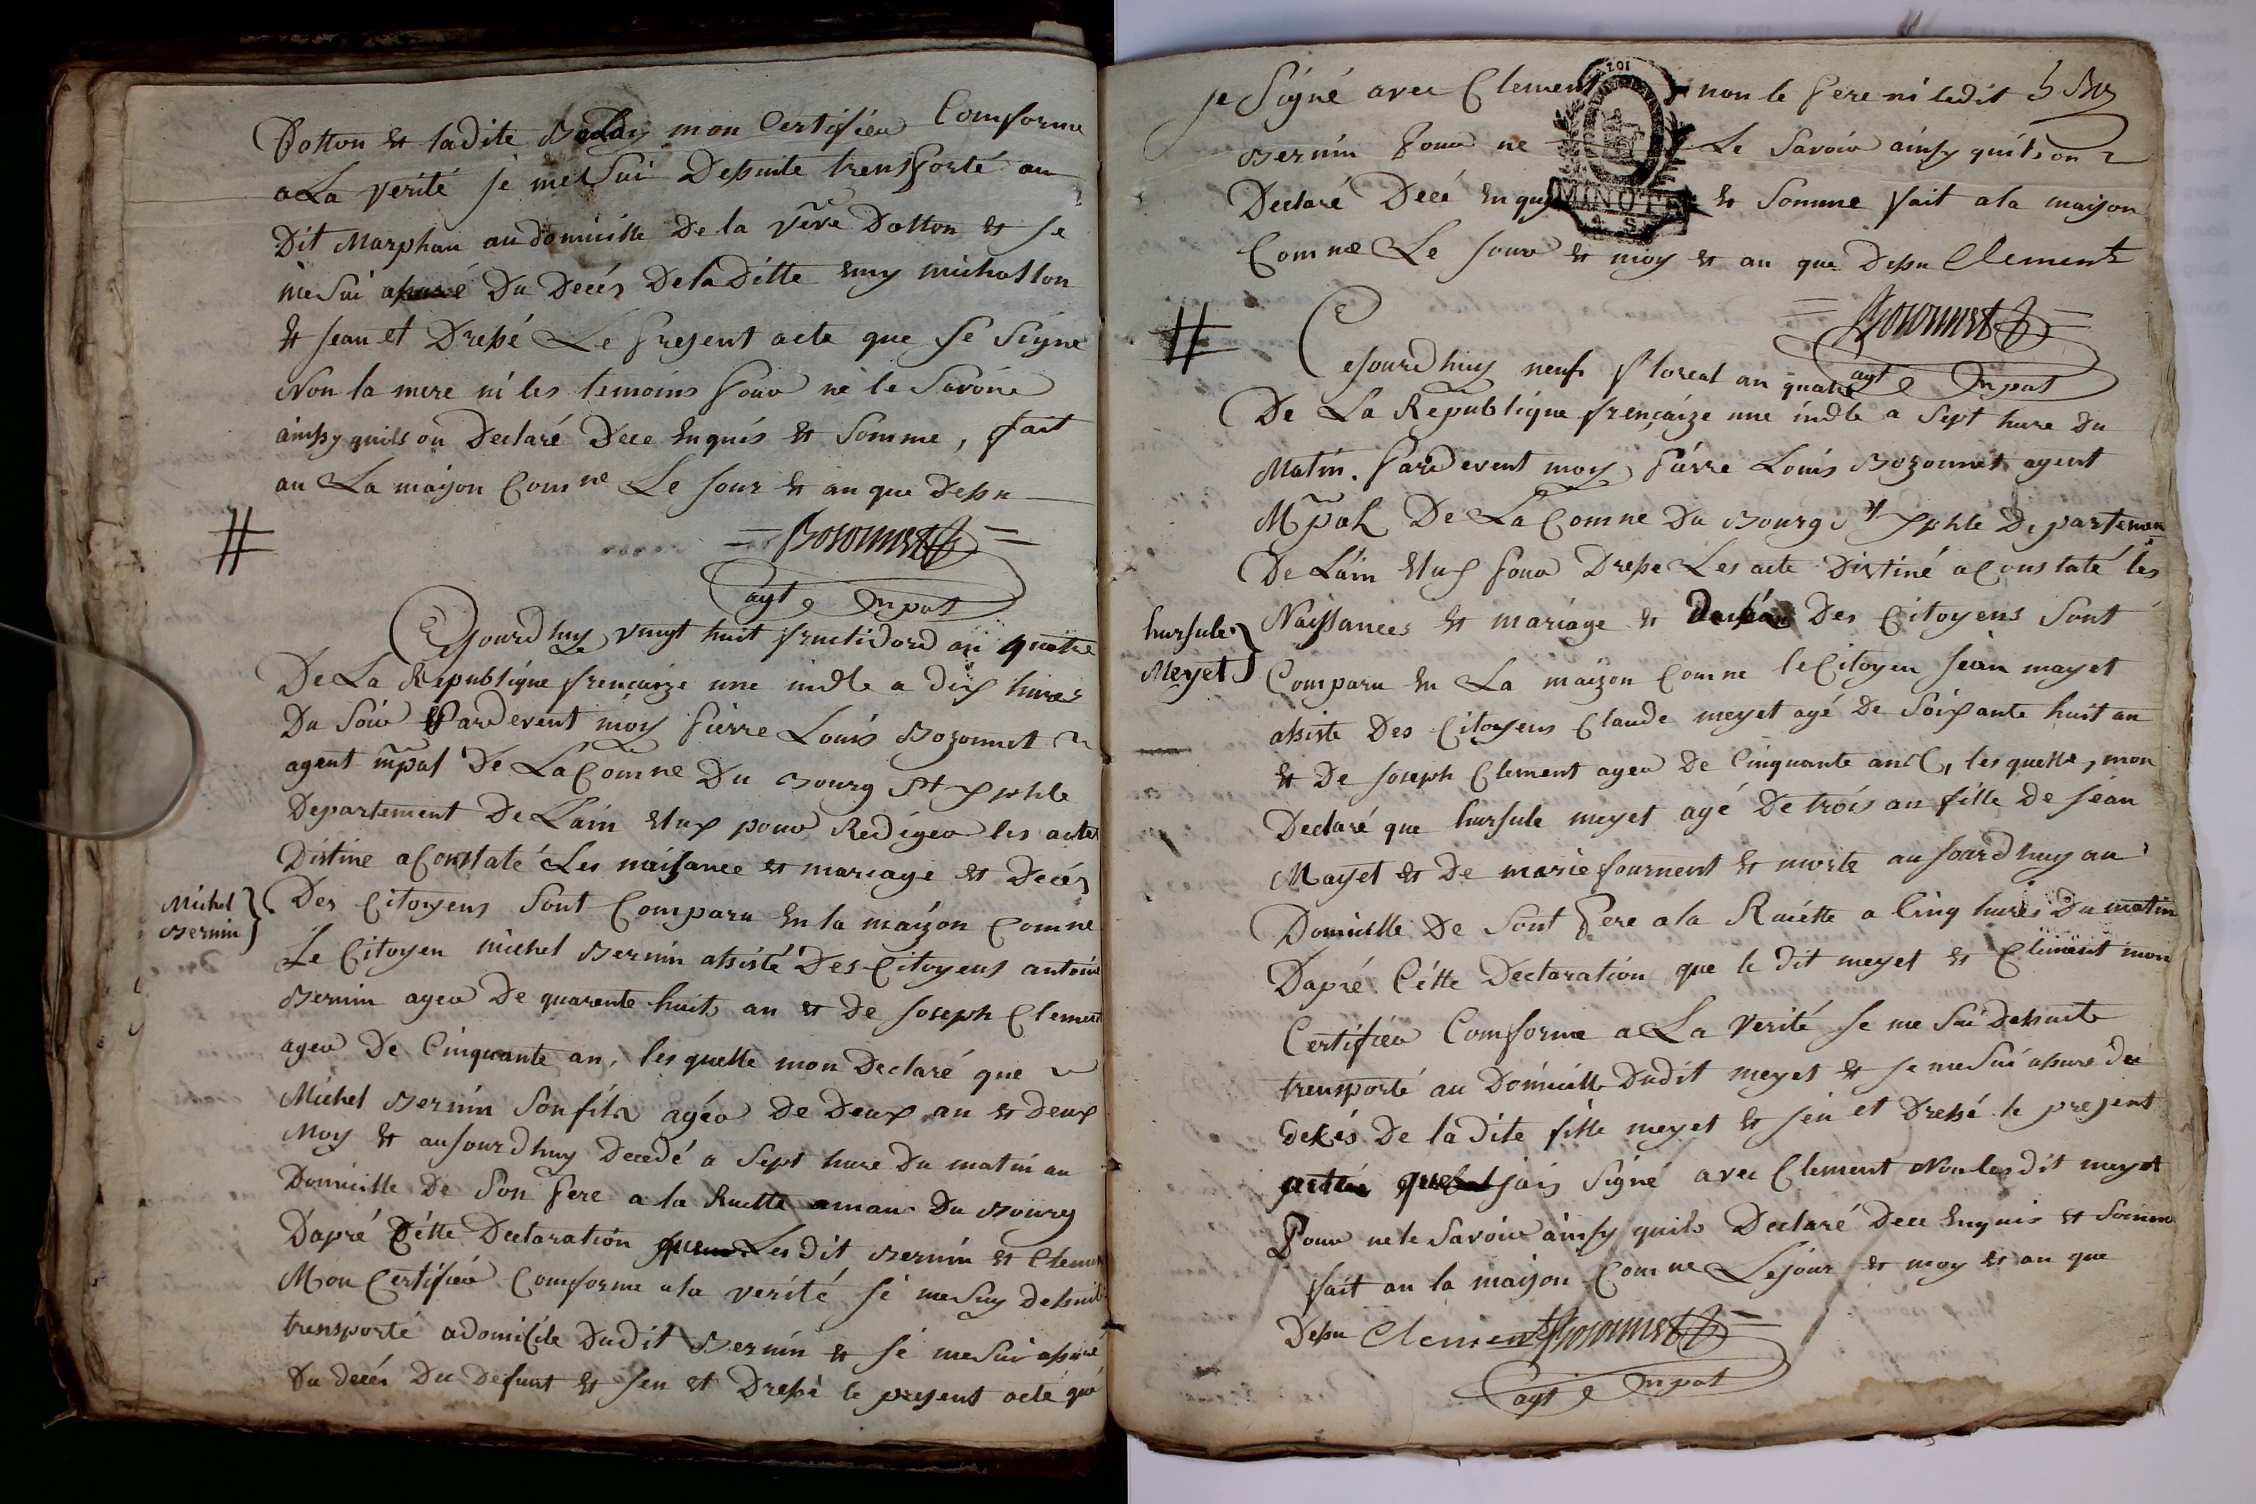 Dotton et ladite mon Certifiea Comforme
a La verité je me Sui Desuite trensporté au
Dit Marphan au domicille De la vve Dotton et je
me Sui assuré Du Decés De la Ditte michallon
et jean et Dressé Le present acte que je Signe
Non la mere ni les temoins pour ne le Savoire
ainsy quils on Declaré Dece Enquis et Somme, fait
an La maison Comne Le jour et an que Desu
Bozonnet
agt mpal
Cejourdhuy vingt huit fructidord an quatre
De La Republique frencaize une indle a dix hures
Du Soir Pardevent moy pierre Louis Bozonnet
agent mpal De La Comne Du Bourg St Xphle
Departement De Lain Elus pour Redigea les actes
Distine a Constaté Les naissance et mariage et Decés
Michel
Bernin
Des Citoyens Sont Comparu En la maizon Comne
Le Citoyen michel Bernin assisté Des Citoyens antoine
Bernin agea De quarente huit an et de joseph Clement
agea De Cinquante an, lesquelle mon Declaré que
Michel Bernin Son fils agéa De Deux an et deux
Moy et aujourdhuy Decedé a Sept hure Du matin au
Domicille De Son pere a la Ruette aman Du Bourg
Dapré Cétte Declaration que Les dit Bernin et Clement
Mon Certifiea Comforme a la verité je me Suy Desuite
trensporté a domicile Dudit Bernin et je me Sui assuré
Du decés Du Defunt et jen et Dressé le present acte que
je Signé avec Clement non le pere ni ledit
Bernin pour ne Le Savoir ainsy quils on
Declaré Decé Enquis et Somme fait a la maison
Comne Le jour et moy et an que Desu Clement
Bozonnet
agt mpal
Cejourdhuy neuf floreal an quatre
De La Republique frençaize une indle a Sept hure Du
Matin. pardevent moy pierre Louis Bozonnet agent
Mpal De La Comne Du Bourg St Xphle Departemen
De Lain Elus pour Dresse Les acte Distiné a Constaté les
hursule
Meyet
Naissances et mariage et Des Citoyens Sont
Comparu En La maizon Comne le Citoyen jean mayet
assiste Des Citoyens Claude meyet agé De Soixante huit an
et De joseph Clement agea De Cinquante an, lesquelle, mon
Declaré que hursule meyet agé De trois an fille De jean
Mayet et De marie fournent et morte aujourdhuy au
Domicille De Sont pere a la Ruiette a Cinq hures Du matin
Dapré Cétte Declaration que le dit meyet et Clement mon
Certifiea Comforme a La verité je me Sui Desuite
trensporté au Domicille Dudit meyet et je me Sui assuré du
dekés De la dite fille meyet et jen et Dressé le present
jais Signé avec Clement Non les dit meyet
Pour ne le Savoir ainsy quils Declaré Dece Enquis et Somme
fait an la maison Comne Le jour et moy et an que
Desu Clement Bozonnet
agt mpal